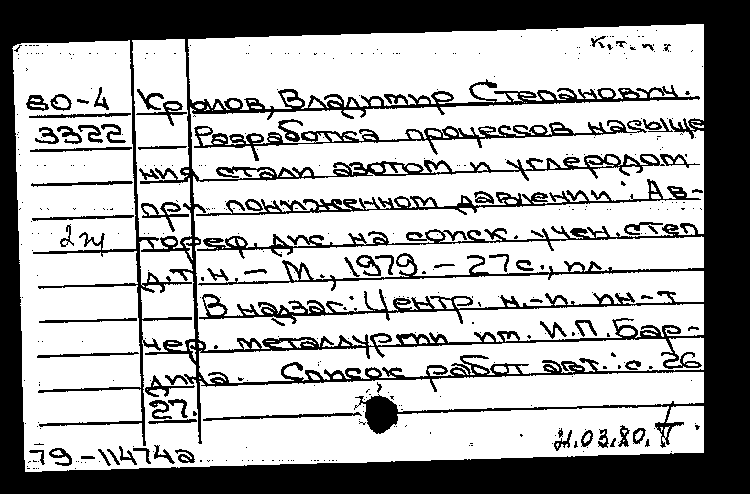 к.т.н.
80-4 Крылов, Владимир Степанович.
3322 Разработка процессов насыще
ния стали азотом и углеродом
при пониженном давлении: Ав-
2 эк тореф. дис. на соиск. учен. степ
д.т.н. – М., 1979. – 27с., ил.
В надзаг.: Центр. н.-и. ин-т
чер. металлургии им. И.П. Бар-
дина. Список работ авт.: с. 26
27.
21.03.80.
79-11474а